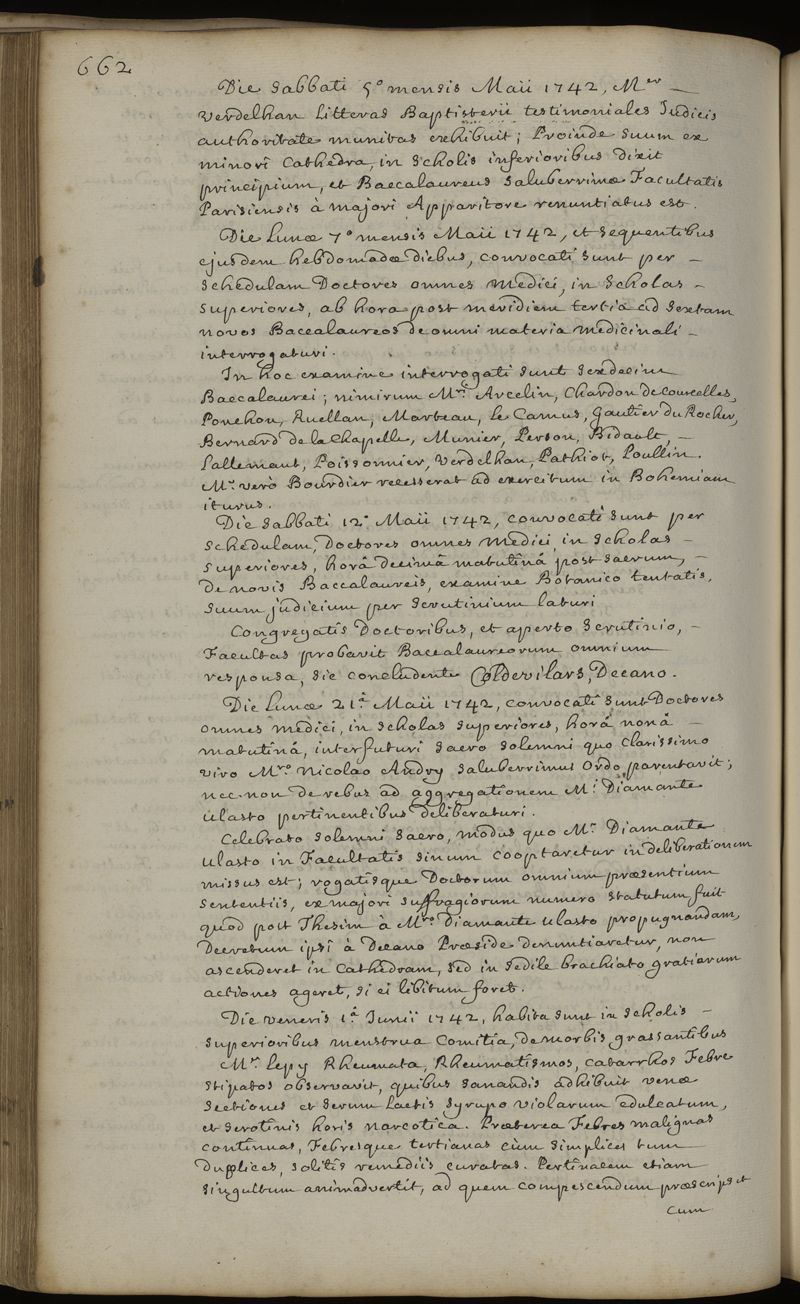 662
Die Sabbati 5º mensis Maii 1742, Mer
Verdelhan Litteras Baptisterii testimoniales Judicis
authoritate munitas exhibuit; Proinde Suum ex
minori Cathedra, in Scholis inferioribus dixit
principium, et Baccalaureus Saluberrimæ Facultatis
Parisiensis à majori Apparitore renuntiatus est.
Die Lunæ 7º mensis Maii 1742, et Sequentibus
ejusdem hebdomadæ diebus, convocati sunt per
Schedulam Doctores omnes Medici, in Scholas
Superiores, ab hora post meridiem tertia ad Sextam
novos Baccalaureos de omni materia medicinali
interrogaturi.
In hoc examine interrogati sunt Sexdecim
Baccalaurei; nimirum Mri Arcelin, Chardon de Courcelles,
Ponchon, Ruellan, Marteau, Le Camus, Gautier du Rocher,
Bernard de la Chapelle, Munier, Person, Bidault,
Lallemant, Poissonnier, Verdelhan, Pathiot, Poullin.
Mr. verò Bourdier recesserat ad exercitum in Bohemiam
iturus.
Die Sabbati 12ª Maii 1742, convocati sunt per
Schedulam, Doctores omnes Medici, in Scholas
Superiores, horâ decimâ matutinâ post Sacrum,
de novis Baccalaureis, examine Botanico tentatis,
Suum judicium per Scrutinium laturi
Congregatis Doctoribus, et aperto Scrutinio,
Facultas probavit Baccalaureorum omnium
responsa, sic concludente Coldevilars, Decano.
Die Lunæ 21ª Maii 1742, convocati sunt Doctores
omnes medici, in Scholas Superiores, horâ nonâ
matutinâ, interfuturi Sacro Solemni quo Clarissimo
viro Mro Nicolao Andry Saluberrimus Ordo parentavit;
nec-non de rebus ad aggregationem Mi Diamante
Ulasto pertinentibus deliberaturi.
Celebrato Solemni Sacro, modus quo Mr Diamante
Ulasto in Facultatis Sinum cooptaretur in deliberationem
missus est; rogatisque Doctorum omnium præsentium
Sententiis, ex majori Suffragiorum numero Statutum fuit
quod post Thesim à Mro Diamante Ulasto propugnandam,
Decretum ipsi à Decano Præside denuntiaretur, non
ascenderet in Cathedram, sed in Sedile brachiato gratiarum
actiones ageret, si ei libitum foret.
Die Veneris 1ª Junii 1742, habita sunt in Scholis
Superioribus menstrua Comitia, de morbis grassantibus
Mr Lepy Rheumata, Rheumatismos, catarrhos Febre
Stipatos observavit, quibus Sanandis adhibuit venæ
Sectiones et Serum Lactis Syrupo violarum edulcatum,
et Serotinis horis narcotica. Præterea Febres malignas
continuas, Febresque tertianas cùm Simplices tum
Duplices, Solitis remediis curatas. Pertinacem etiam
Singultum animadvertit, ad quem compescendum præscripsit
cum